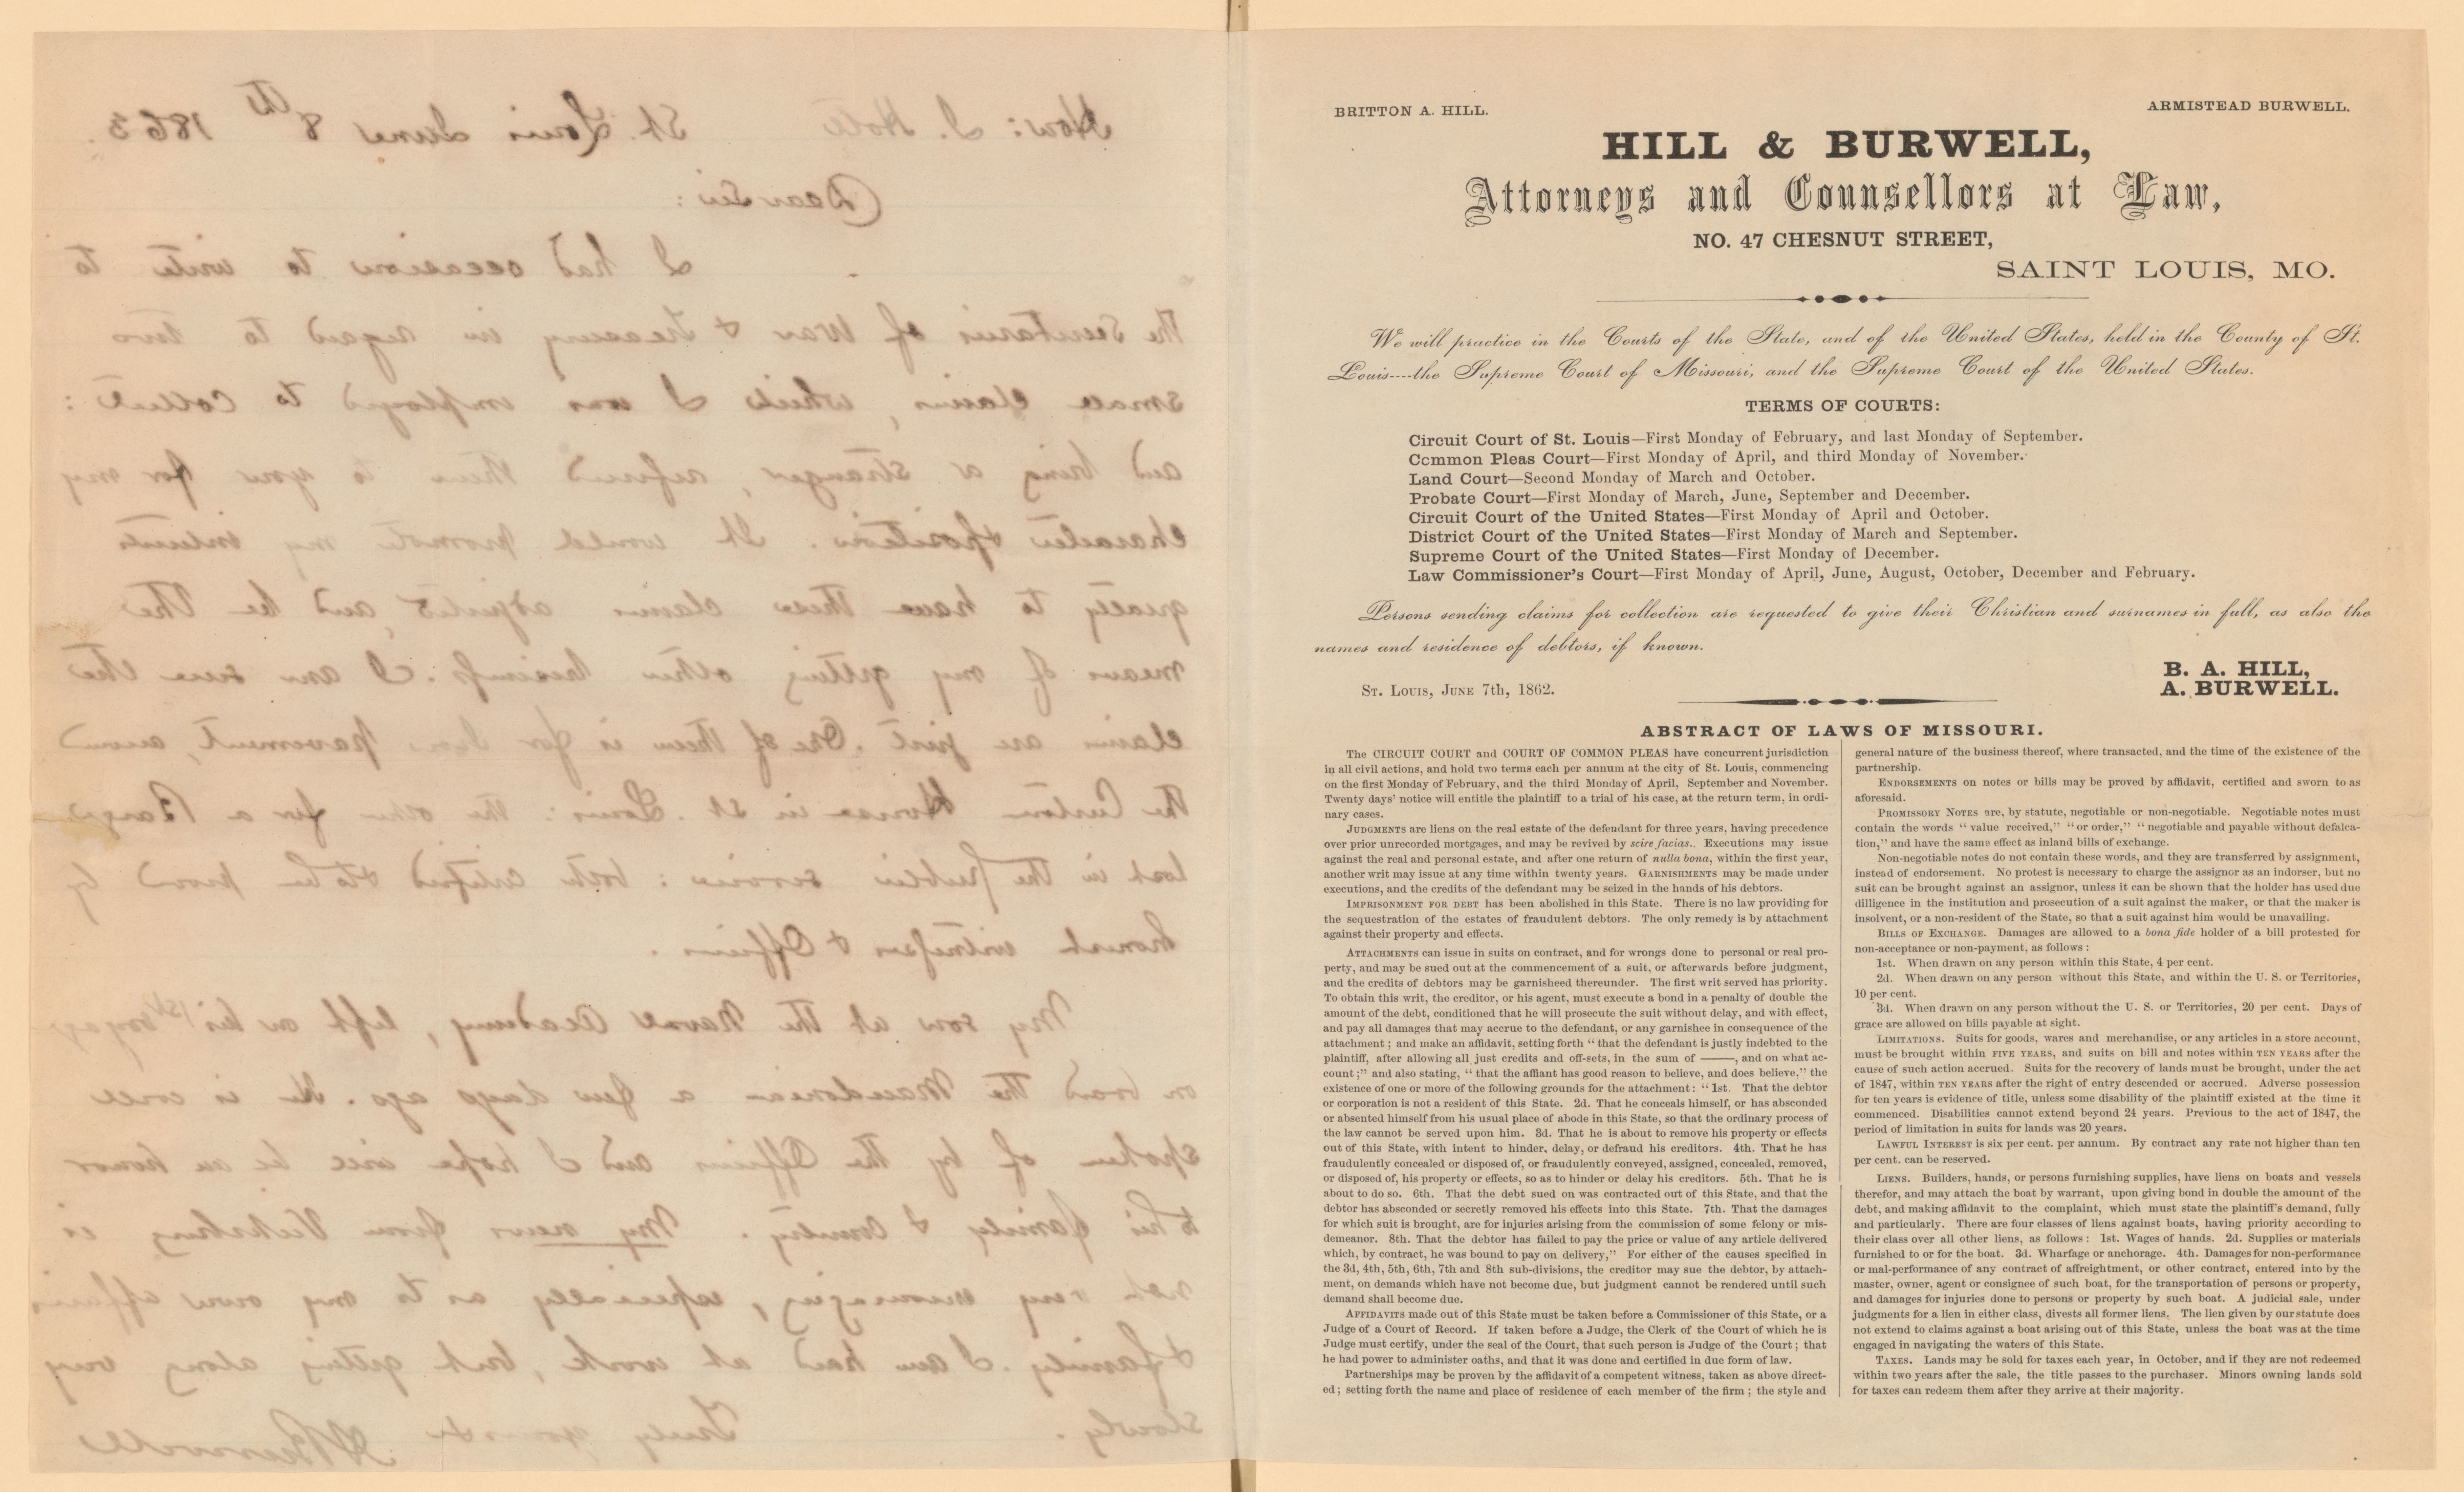 Hon: J. Holt St. Louis June 8th 1863.
Dear Sir:
I had occasion to write to
the Secretaries of War & Treasury in regard to two
small claims, which I was employed to collect:
and being a stranger, refered them to you for my
character & position. It would promote my interests
greatly to have these claims adjusted, and be the
means of my getting other business. I am sure the
claims are just. One of them is for Iron pavement, around
the Custom House in St. Louis: the other for a Barge
lost in the public service: both certified & to be proved by
honest witnesses & Officers.
My son at the Naval Academy, left on his 1st voyage
on board the Macedonian a few days ago. He is well
spoken of by the Officers and I hope will be an honor
to his family & Country. My news from Vicksburg is
not very encouraging, especially as to my own affairs
& family. I am hard at work, but getting along very
slowly. Truly yours &c
A Burwell
BRITTON A. HILL. ARMISTEAD BURWELL.
HILL & BURWELL,
Attorneys and Counsellors at Law,
NO. 47 CHESNUT STREET,
SAINT LOUIS, MO.
We will practice in the Courts of the State, and of the United States, held in the County of St.
Louis----the Supreme Court of Missouri, and the Supreme Court of the United States.
TERMS OF COURTS:
Circuit Court of St. Louis—First Monday of February, and last Monday of September.
Common Pleas Court—First Monday of April, and third Monday of November.
Land Court—Second Monday of March and October.
Probate Court—First Monday of March, June, September and December.
Circuit Court of the United States—First Monday of April and October.
District Court of the United States—First Monday of March and September.
Supreme Court of the United States—First Monday of December.
Law Commissioner's Court—First Monday of April, June, August, October, December and February.
Persons sending claims for collection are requested to give their Christian and surnames in full, as also the
names and residence of debtors, if known.
B. A. HILL,
A. BURWELL.
St. Louis, June 7th, 1862.
ABSTRACT OF LAWS OF MISSOURI.
The CIRCUIT COURT and COURT OF COMMON PLEAS have concurrent jurisdiction
in all civil actions, and hold two terms each per annum at the city of St. Louis, commencing
on the first Monday of February, and the third Monday of April, September and November.
Twenty days' notice will entitle the plaintiff to a trial of his case, at the return term, in ordi-
nary cases.
JUDGMENTS are liens on the real estate of the defendant for three years, having precedence
over prior unrecorded mortgages, and may be revived by scire facias. Executions may issue
against the real and personal estate, and after one return of nulla bona, within the first year,
another writ may issue at any time within twenty years. GARNISHMENTS may be made under
executions, and the credits of the defendant may be seized in the hands of his debtors.
IMPRISONMENT FOR DEBT has been abolished in this State. There is no law providing for
the sequestration of the estates of fraudulent debtors. The only remedy is by attachment
against their property and effects.
ATTACHMENTS can issue in suits on contract, and for wrongs done to personal or real pro-
perty, and may be sued out at the commencement of a suit, or afterwards before judgment,
and the credits of debtors may be garnisheed thereunder. The first writ served has priority.
To obtain this writ, the creditor, or his agent, must execute a bond in a penalty of double the
amount of the debt, conditioned that he will prosecute the suit without delay, and with effect,
and pay all damages that may accrue to the defendant, or any garnishee in consequence of the
attachment; and make an affidavit, setting forth "that the defendant is justly indebted to the
plaintiff, after allowing all just credits and off-sets, in the sum of ——, and on what ac-
count;" and also stating, "that the affiant has good reason to believe, and does believe," the
existence of one or more of the following grounds for the attachment: "1st. That the debtor
or corporation is not a resident of this State. 2d. That he conceals himself, or has absconded
or absented himself from his usual place of abode in this State, so that the ordinary process of
the law cannot be served upon him. 3d. That he is about to remove his property or effects
out of this State, with intent to hinder, delay, or defraud his creditors. 4th. That he has
fraudulently concealed or disposed of, or fraudulently conveyed, assigned, concealed, removed,
or disposed of, his property or effects, so as to hinder or delay his creditors. 5th. That he is
about to do so. 6th. That the debt sued on was contracted out of this State, and that the
debtor has absconded or secretly removed his effects into this State. 7th. That the damages
for which suit is brought, are for injuries arising from the commission of some felony or mis-
demeanor. 8th. That the debtor has failed to pay the price or value of any article delivered
which, by contract, he was bound to pay on delivery," For either of the causes specified in
the 3d, 4th, 5th, 6th, 7th and 8th sub-divisions, the creditor may sue the debtor, by attach-
ment, on demands which have not become due, but judgment cannot be rendered until such
demand shall become due.
AFFIDAVITS made out of this State must be taken before a Commissioner of this State, or a
Judge of a Court of Record. If taken before a Judge, the Clerk of the Court of which he is
Judge must certify, under the seal of the Court, that such person is Judge of the Court; that
he had power to administer oaths, and that it was done and certified in due form of law.
Partnerships may be proven by the affidavit of a competent witness, taken as above direct-
ed; setting forth the name and place of residence of each member of the firm; the style and
general nature of the business thereof, where transacted, and the time of the existence of the
partnership.
ENDORSEMENTS on notes or bills may be proved by affidavit, certified and sworn to as
aforesaid.
PROMISSORY NOTES are, by statute, negotiable or non-negotiable. Negotiable notes must
contain the words "value received," "or order," "negotiable and payable without defalca-
tion," and have the same effect as inland bills of exchange.
Non-negotiable notes do not contain these words, and they are transferred by assignment,
instead of endorsement. No protest is necessary to charge the assignor as an indorser, but no
suit can be brought against an assignor, unless it can be shown that the holder has used due
dilligence in the institution and prosecution of a suit against the maker, or that the maker is
insolvent, or a non-resident of the State, so that a suit against him would be unavailing.
BILLS OF EXCHANGE. Damages are allowed to a bona fide holder of a bill protested for
non-acceptance or non-payment, as follows:
1st. When drawn on any person within this State, 4 per cent.
2d. When drawn on any person without this State, and within the U. S. or Territories,
10 per cent.
3d. When drawn on any person without the U. S. or Territories, 20 per cent. Days of
grace are allowed on bills payable at sight.
LIMITATIONS. Suits for goods, wares and merchandise, or any articles in a store account,
must be brought within FIVE YEARS, and suits on bill and notes within TEN YEARS after the
cause of such action accrued. Suits for the recovery of lands must be brought, under the act
of 1847, within TEN YEARS after the right of entry descended or accrued. Adverse possession
for ten years is evidence of title, unless some disability of the plaintiff existed at the time it
commenced. Disabilities cannot extend beyond 24 years. Previous to the act of 1847, the
period of limitation in suits for lands was 20 years.
LAWFUL INTEREST is six per cent. per annum. By contract any rate not higher than ten
per cent. can be reserved.
LIENS. Builders, hands, or persons furnishing supplies, have liens on boats and vessels
therefor, and may attach the boat by warrant, upon giving bond in double the amount of the
debt, and making affidavit to the complaint, which must state the plaintiff's demand, fully
and particularly. There are four classes of liens against boats, having priority according to
their class over all other liens, as follows: 1st. Wages of hands. 2d. Supplies or materials
furnished to or for the boat. 3d. Wharfage or anchorage. 4th. Damages for non-performance
or mal-performance of any contract of affreightment, or other contract, entered into by the
master, owner, agent or consignee of such boat, for the transportation of persons or property,
and damages for injuries done to persons or property by such boat. A judicial sale, under
judgments for a lien in either class, divests all former liens. The lien given by our statute does
not extend to claims against a boat arising out of this State, unless the boat was at the time
engaged in navigating the waters of this State.
TAXES. Lands may be sold for taxes each year, in October, and if they are not redeemed
within two years after the sale, the title passes to the purchaser. Minors owning lands sold
for taxes can redeem them after they arrive at their majority.